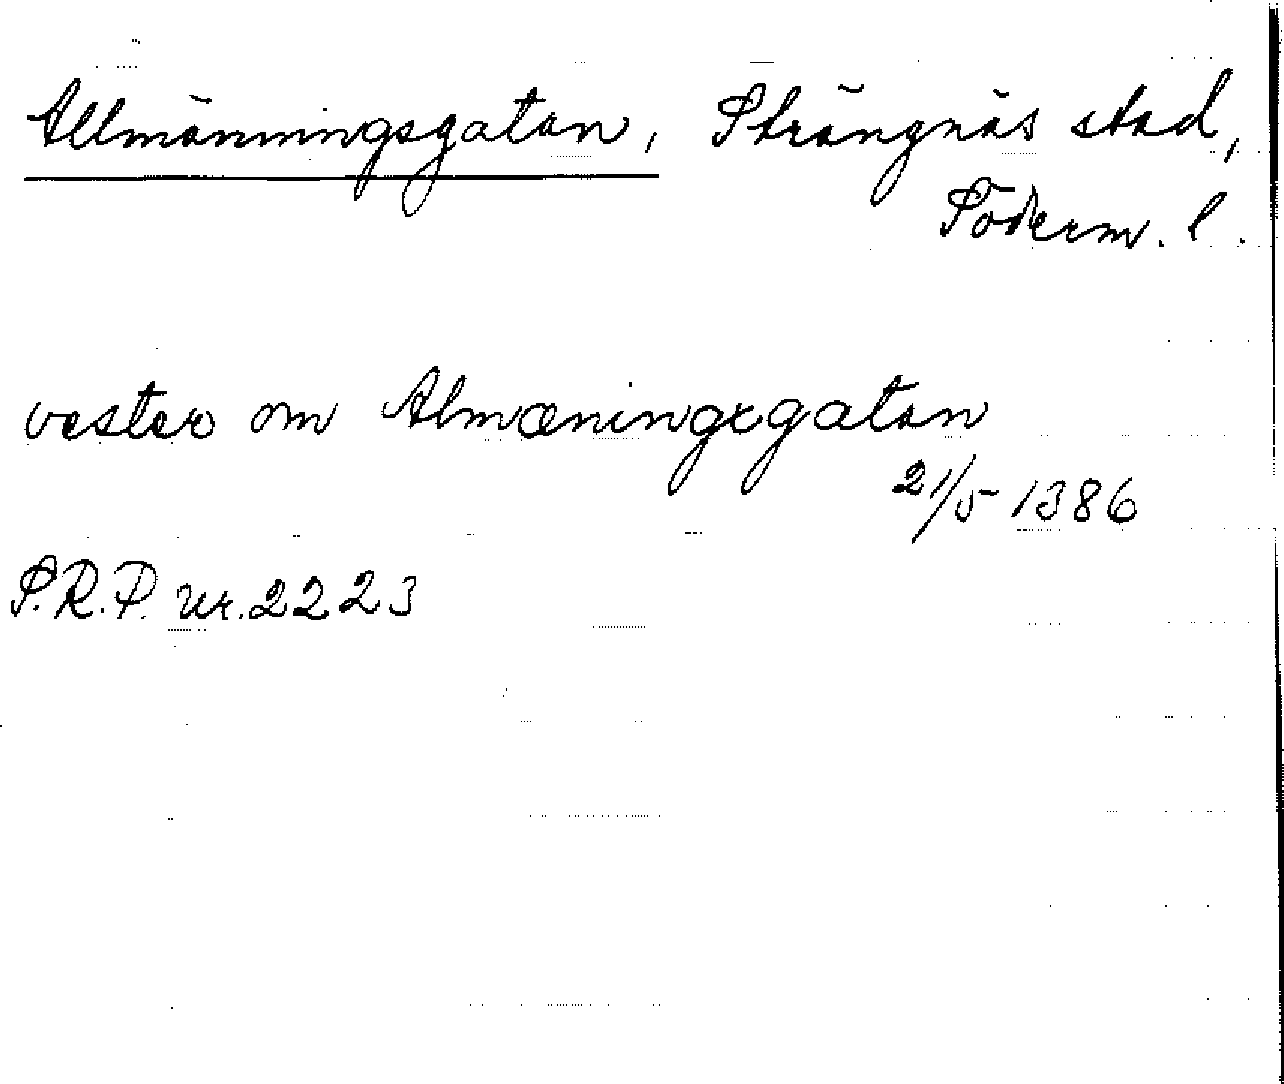 Allmänningsgatan, Strängnäs stad,
Söderm. l.
vester om Almæningxgatan
21/5 1386
S.R.P. nr. 2223